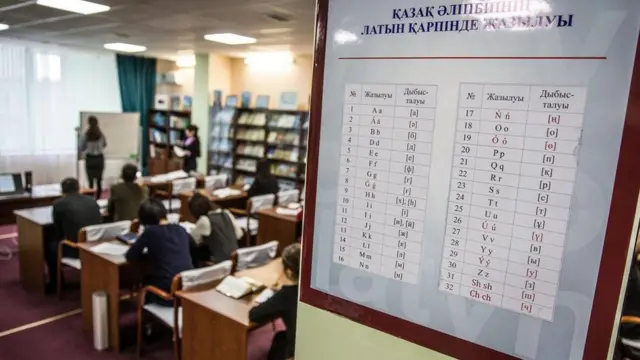 ҚАЗАҚ ӘЛІПБИІНІҢ
ЛАТЫН ҚАРПІНДЕ ЖАЗЫЛУЫ
№ Жазылуы Дыбысталуы
1 A a [а]
2 Á á [ә]
3 B b [б]
4 D d [д]
5 E e [е]
6 F f [ф]
7 G g [г]
8 Ǵ ǵ [ғ]
9 H h [х], [һ]
10 I i [і]
11 I ı [и], [й]
12 J j [ж]
13 K k [к]
14 L l [л]
15 M m [м]
16 N n [н]
№ Жазылуы Дыбысталуы
17 Ń ń [ң]
18 O o [о]
19 Ó ó [ө]
20 P p [п]
21 Q q [қ]
22 R r [р]
23 S s [с]
24 T t [т]
25 U u [ұ]
26 Ú ú [ү]
27 V v [в]
28 Y y [ы]
29 Ý ý [у]
30 Z z [з]
31 Sh sh [ш]
32 Ch ch [ч]